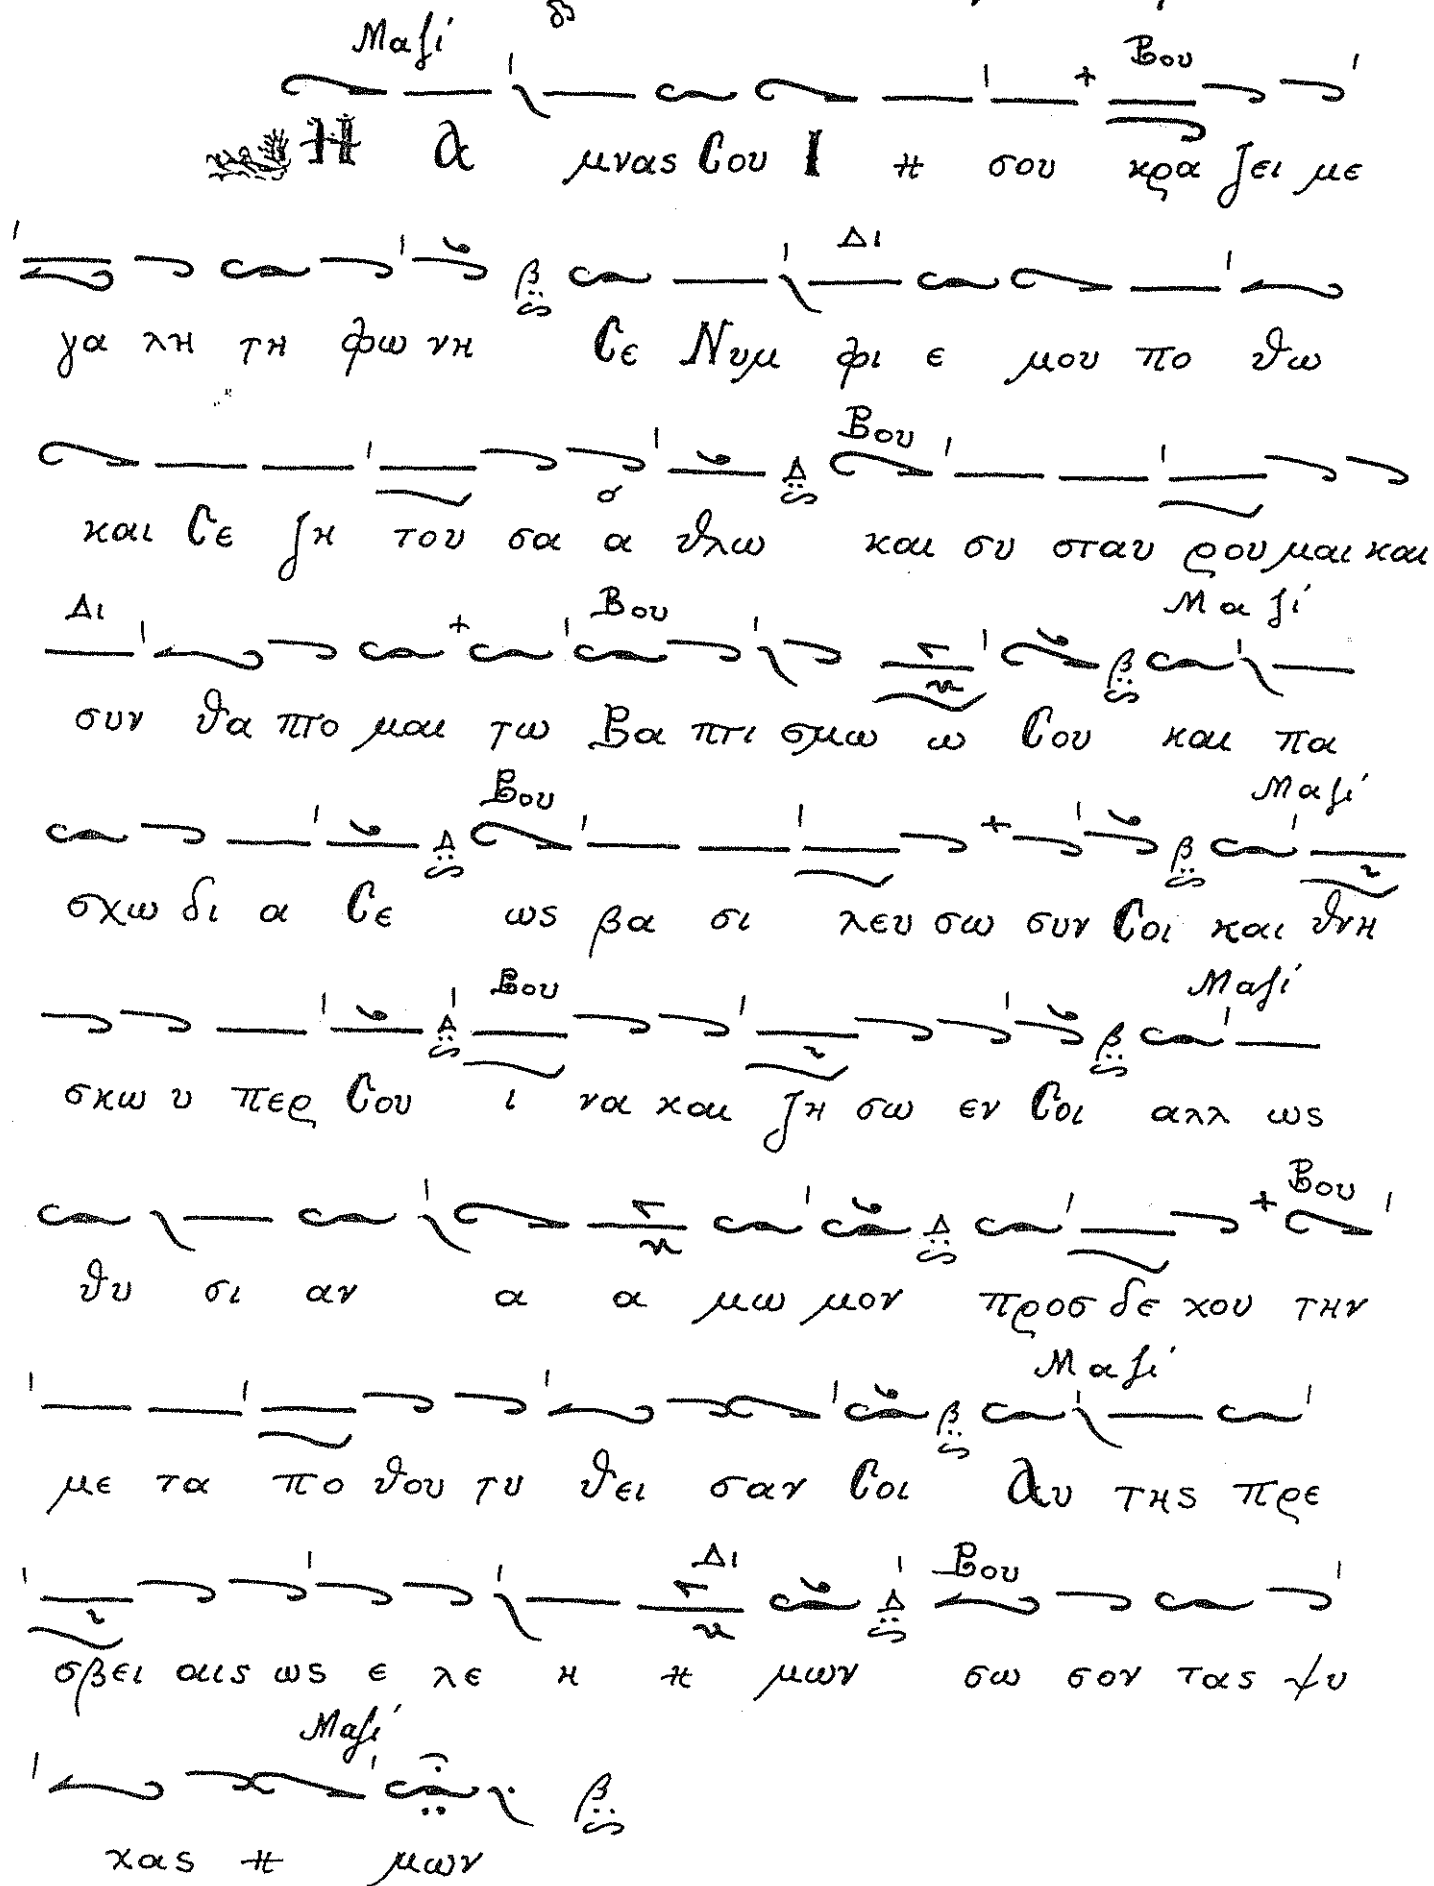 Μαζί
Βου
Η Α μνας Σου Ι η σου κρα ζει με
Δι
γα λη τη φω νη Σε Νυμ φι ε μου πο θω
Βου
και Σε ζη του σα α θλω και συ σταυ ρου μαι και
Δι Βου Μαζί
συν θα πτο μαι τω Βα πτι σμω ω Σου και πα
Βου Μαζί
σχω δι α Σε ως βα σι λευ σω συν Σοι και θνη
Βου Μαζί
σκω υ περ Σου ι να και ζη σω εν Σοι αλλ ως
Βου
θυ σι αν α α μω μον προσ δε χου την
Μαζί
με τα πο θου τυ θει σαν Σοι Αυ της πρε
Δι Βου
σβει αις ως ε λε η η μων σω σον τας ψυ
Μαζί
χας η μων